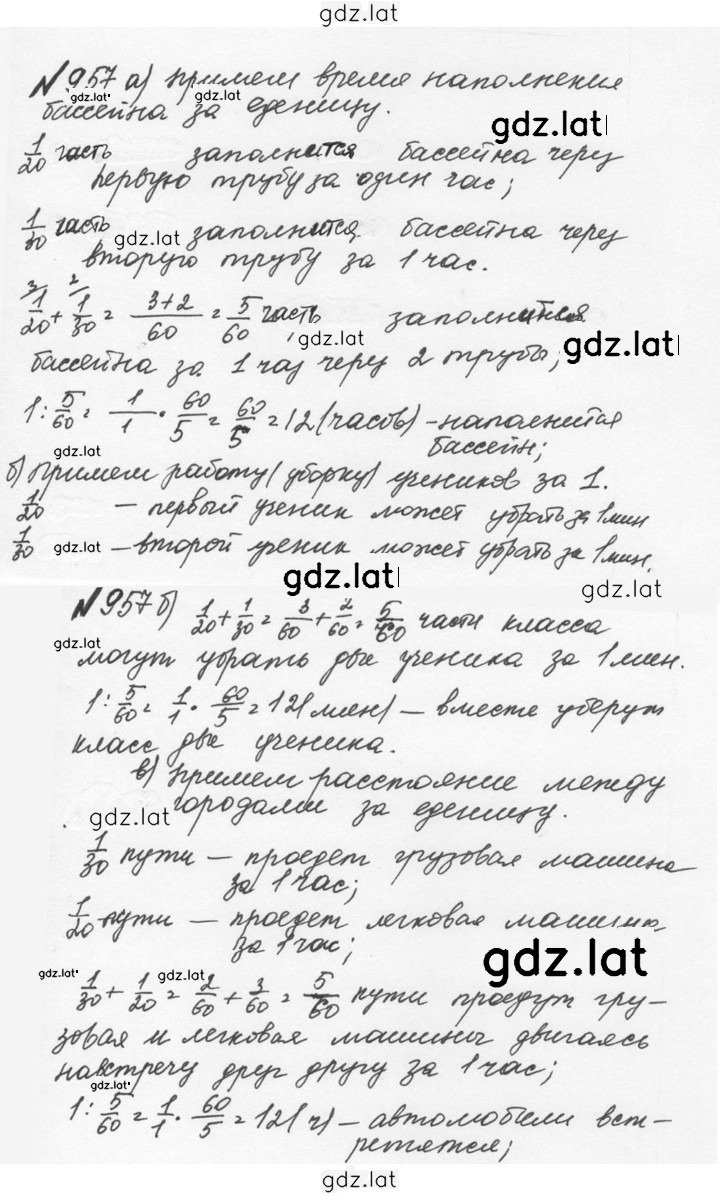 gdz.lat
№957 а) примем время наполнения
gdz.lat gdz.lat
бассейна за еденицу.
gdz.lat
1/20 часть заполнится бассейна через
первую трубу за один час;
1/30 часть заполнится бассейна через
gdz.lat
вторую трубу за 1 час.
3 2
1/20 + 1/30 = 3+2/60 = 5/60 часть заполнится
gdz.lat gdz.lat
бассейна за 1 час через 2 трубы;
1 : 5/60 = 1/1 · 60/5 = 60/5 = 12 (часов) - наполнится
gdz.lat бассейн;
б) Примем работу (уборку) учеников за 1.
1/20 – первый ученик может убрать за 1 мин
1/30 gdz.lat – второй ученик может убрать за 1 мин.
gdz.lat gdz.lat
№957 б) 1/20 + 1/30 = 3/60 + 2/60 = 5/60 части класса
gdz.lat
могут убрать два ученика за 1 мин.
1 : 5/60 = 1/1 · 60/5 = 12 (мин) – вместе уберут
класс две ученика.
в) Примем расстояние между
городами за еденицу.
gdz.lat
1/30 пути – проедет грузовая машина
за 1 час;
1/20 пути – проедет легковая машина
за 1 час;
gdz.lat
gdz.lat gdz.lat
1/30 + 1/20 = 2/60 + 3/60 = 5/60 пути проедут гру-
зовая и легковая машины двигаясь
навстречу друг другу за 1 час;
gdz.lat
1 : 5/60 = 1/1 · 60/5 = 12 (ч) – автомобили вст-
ретятся;
gdz.lat